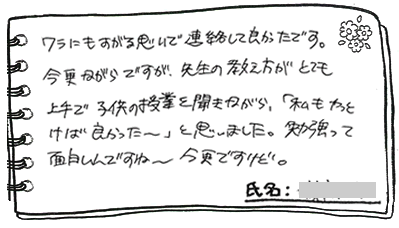 ワラにもすがる思いで連絡して良かったです。
今更ながらですが、先生の教え方がとても
上手で子供の授業を聞きながら、「私もやっと
けば良かった〜」と思いました。勉強って
面白いんですね〜今更ですけど。
氏名: